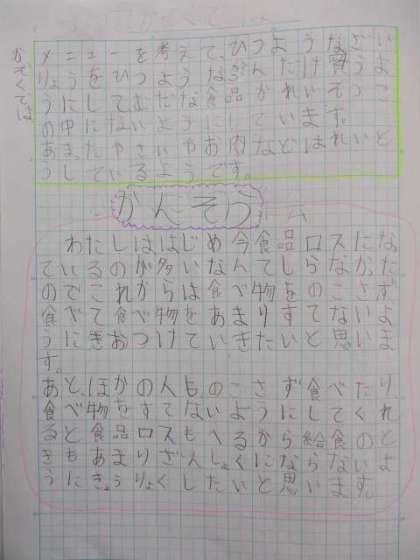 かぞくでは
メニューを考えて、ひつようなざい
りょうをひつようなぶんだけ買うよ
うにしてむだな食品がれいぞうこ
の中にないようにしています。
あまったやさいやお肉などはれいと
うしているようです。
かんそう
わたしははじめ今食品ロスにな
ているのが多いなんてしらなかった
のでこれからは食べ物をのこさず
食べて食べ物をあまりすてないよ
うにきおつけていきたいと思いま
す。
あと、ほかの人ものこさず食べたり
食べ物をすてないようにしてくれ
ると食品ロスもへるから給食のと
きもあまりざんしょくにならないよ
うにきょうりょくしたいと思います。